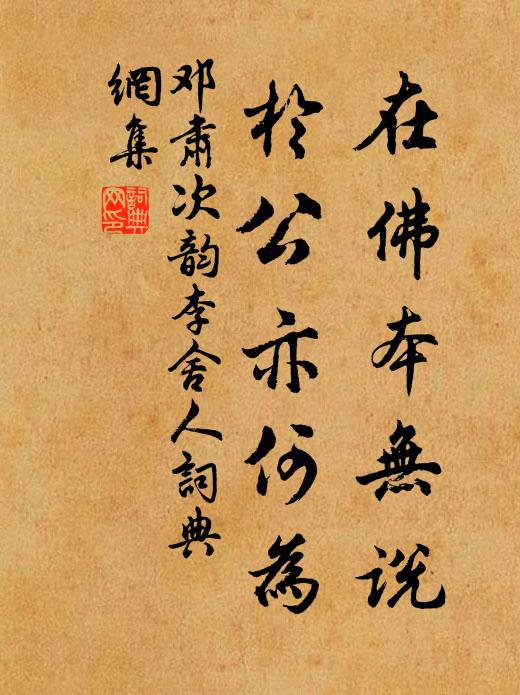 在佛本無説
於公亦何為
邓肅次韵李舍人詞典
網集
詞典
网印